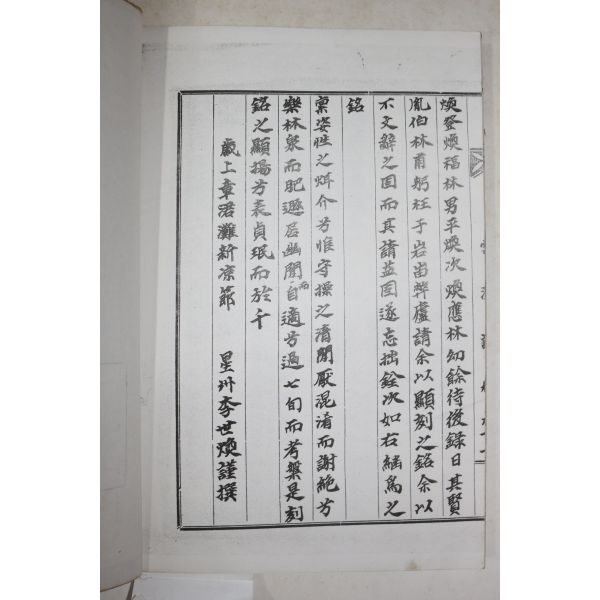 煥登煥福林男平煥次煥應林幼餘待後錄日其賢
胤伯林甫躬枉于岩齒弊廬請余以顯刻之銘余以
不文辭之固而其請益固遂忘拙銓次如右繼爲之
銘
稟姿性之炯介兮惟守操之清閒厭混淆而謝絶兮
樂林泉而肥遯居幽閒而自適兮過七旬而考槃是刻
銘之顯揚兮表貞珉而於千
歲上章涒灘新凉節 星州李世煥謹撰